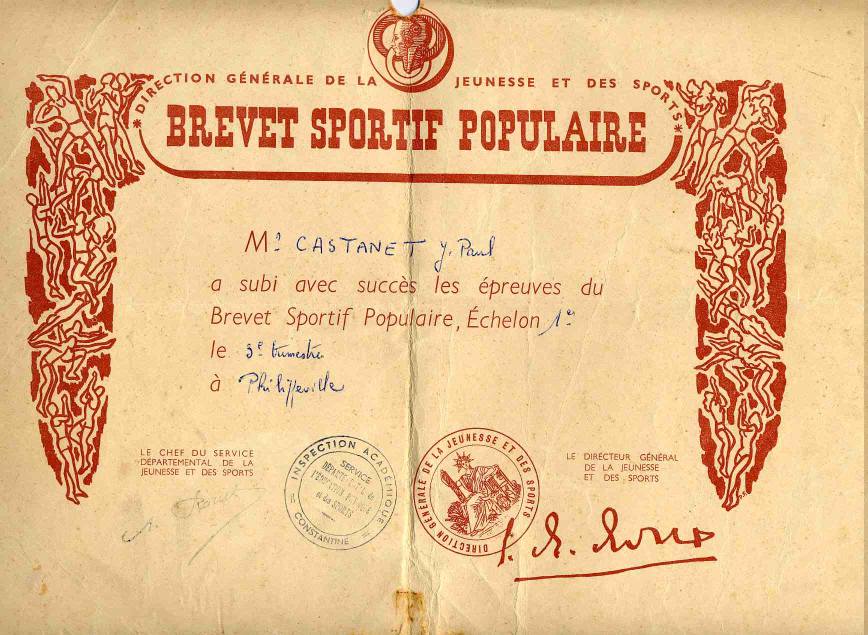 DIRECTION GÉNÉRALE DE LA JEUNESSE ET DES SPORTS
BREVET SPORTIF POPULAIRE
Mr CASTANET J. Paul
a subi avec succès les épreuves du
Brevet Sportif Populaire, Échelon 1er
le 3e trimestre
à Philippeville
LE CHEF DU SERVICE
DÉPARTEMENTAL DE LA
JEUNESSE ET DES SPORTS
INSPECTION ACADÉMIQUE
SERVICE
et des SPORTS
CONSTANTINE
DIRECTION GÉNÉRALE DE LA JEUNESSE ET DES SPORTS
LE DIRECTEUR GÉNÉRAL
DE LA JEUNESSE
ET DES SPORTS